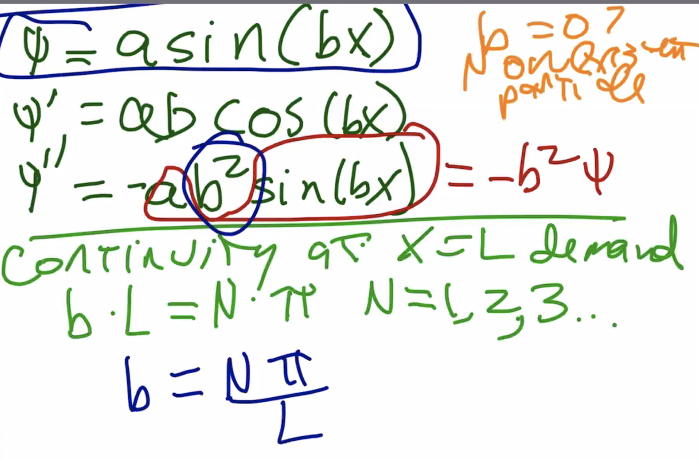 ψ = a sin(bx)
b = 0 ?
N
particle
ψ' = ab cos(bx)
ψ'' = -ab² sin(bx) = -b² ψ
continuity at x = L demand
b · L = N · π N = 1, 2, 3...
b = Nπ/L